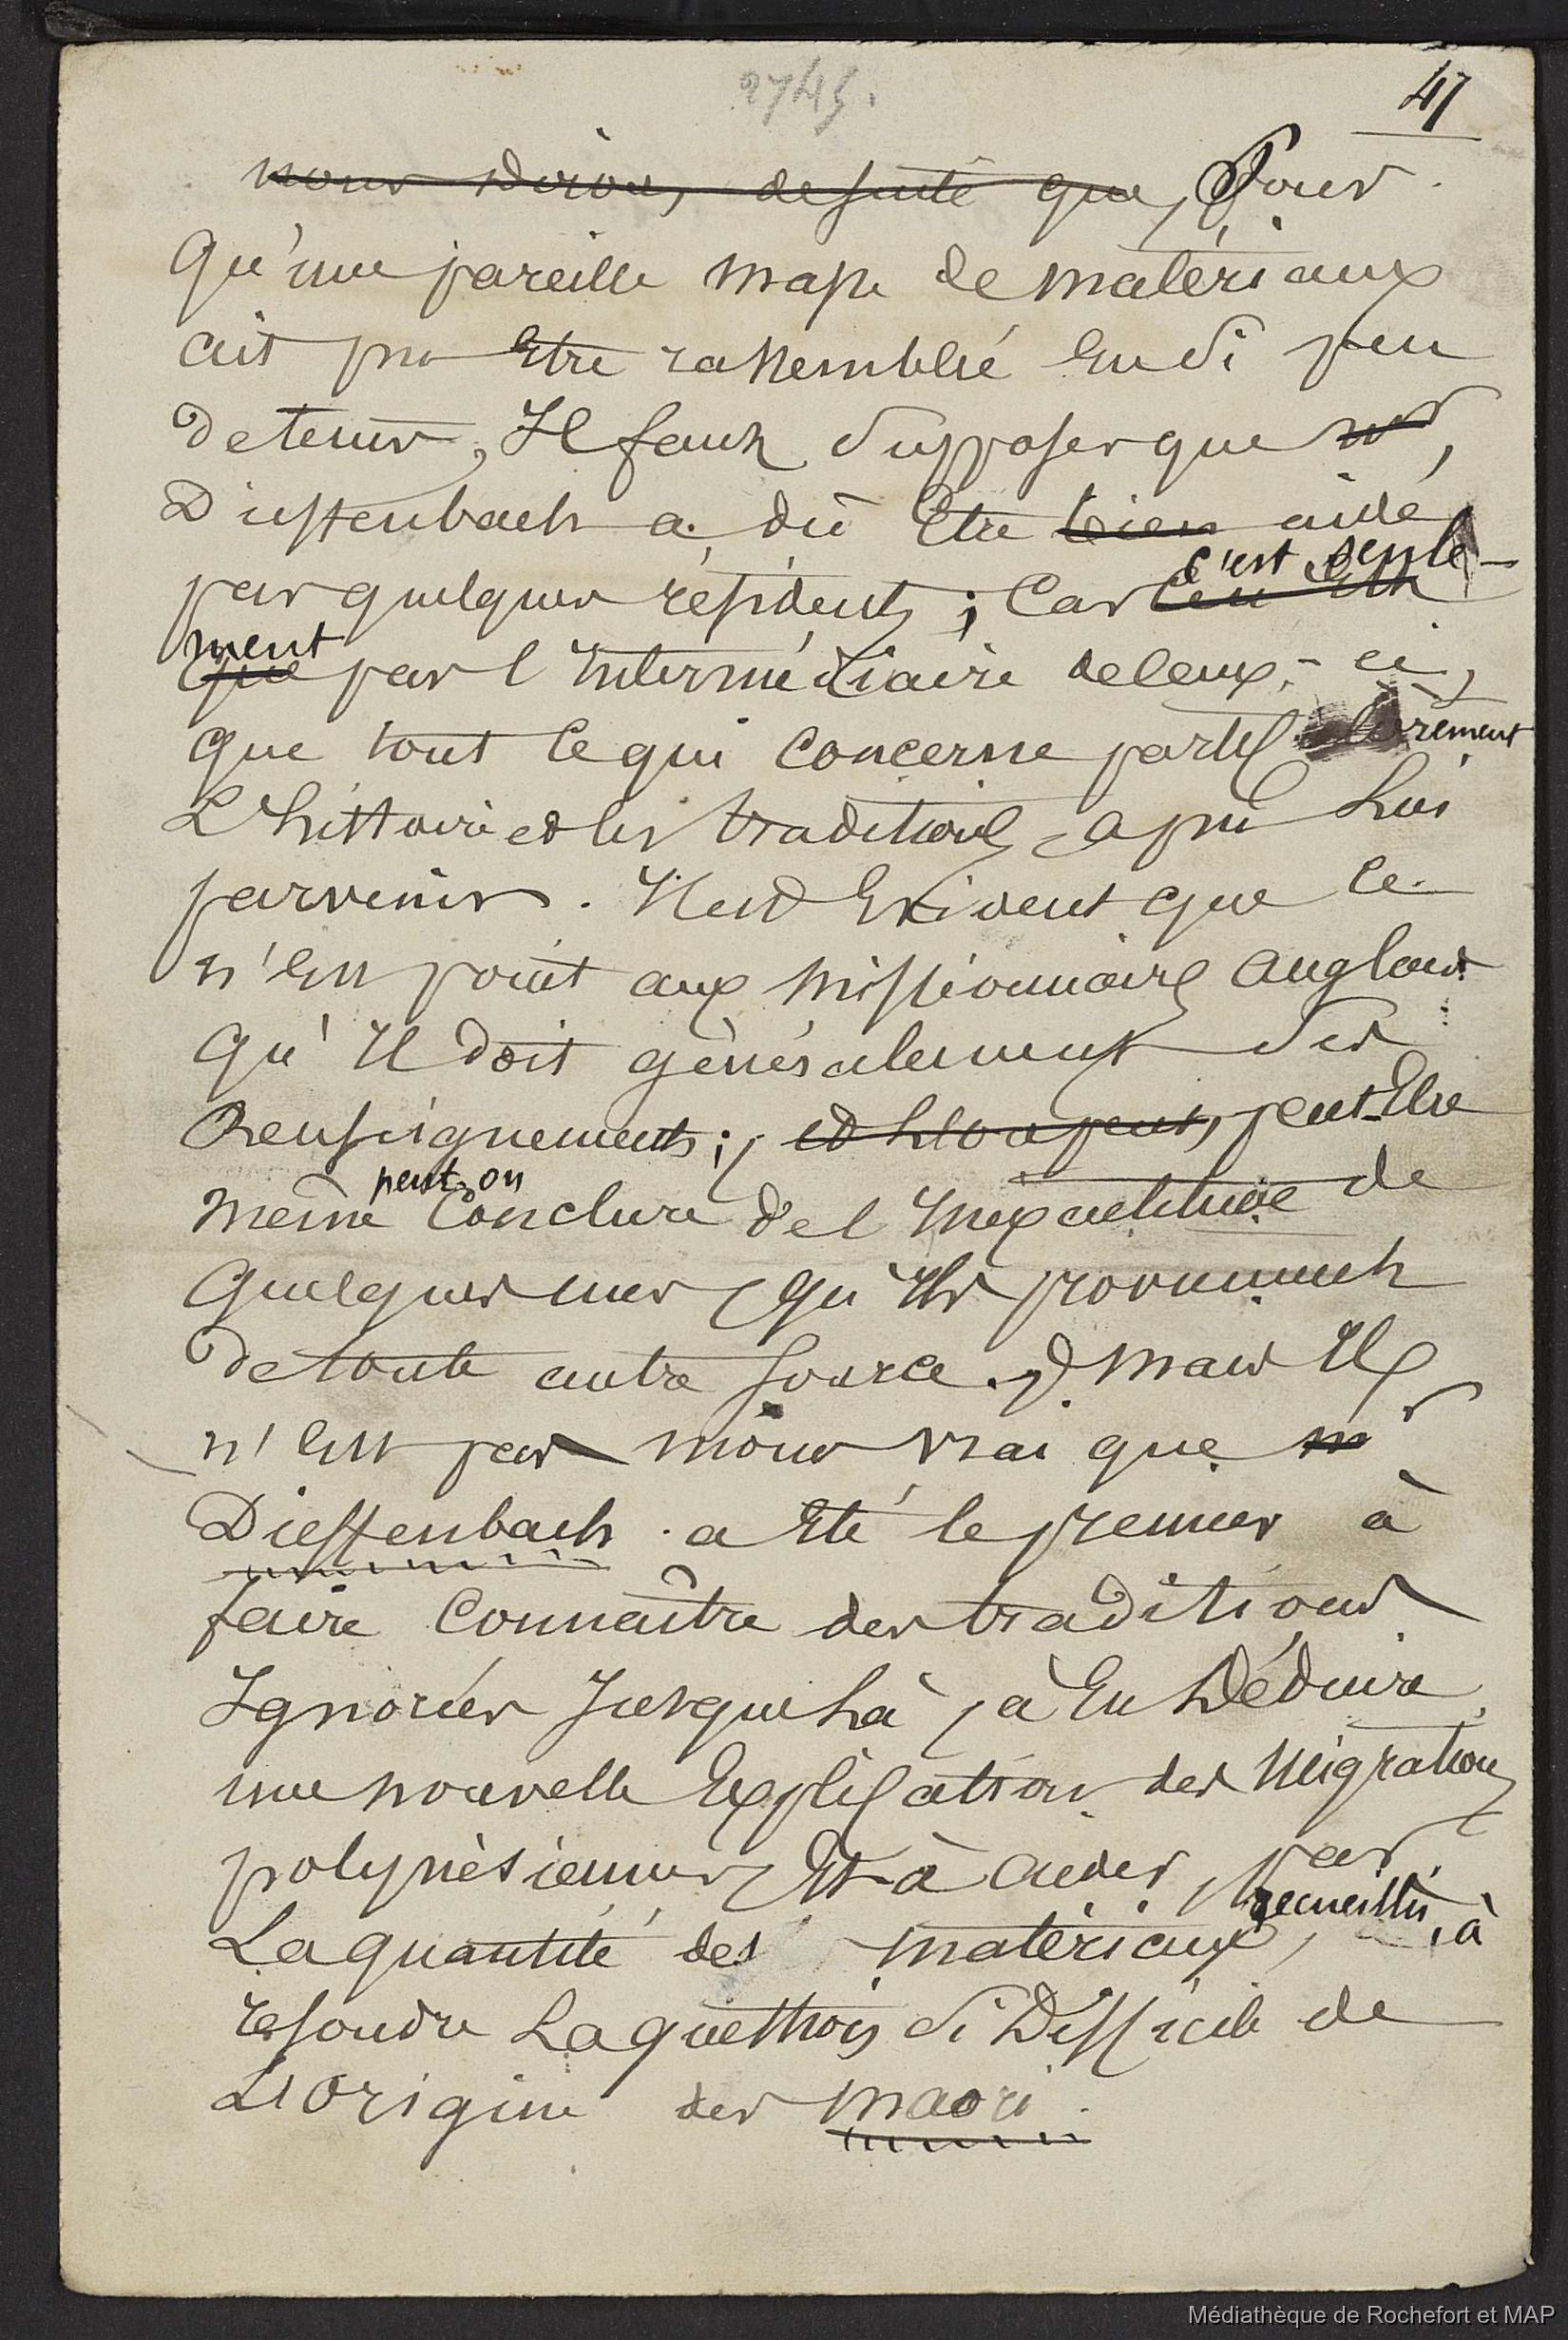 2745.
47
nous dirons, de suite que, Pour
qu'une pareille masse de matériaux
ait pu Etre rassemblée En si peu
de tems, Il faut supposer que Mr,
Dieffenbach a dû Etre bien aidé,
par quelques résidents ; Car c'est seule-
ment par l'Intermédiaire de Ceux-ci,
que tout Ce qui Concerne particulièrement
L'histoire et les traditions, a pu Lui
parvenir. Il est Evident que Ce
n'Est point aux Missionnaires Anglais
qu'Il doit généralement Ses
Renseignements ; peut-Etre
même peut-on Conclure de l'Inexactitude de
quelques uns, qu'Ils proviennent
de toute autre Source. Mais Il
n'Est pas moins vrai que Mr
Dieffenbach a Eté le premier à
faire Connaître des traditions
Ignorées Jusque Là, à En Déduire
une nouvelle Explication des Migrations
polynésiennes, Et à aider, par
La quantité des matériaux recueillis, à
résoudre La question Si Difficile de
L'Origine des Maori.
Médiathèque de Rochefort et MAP